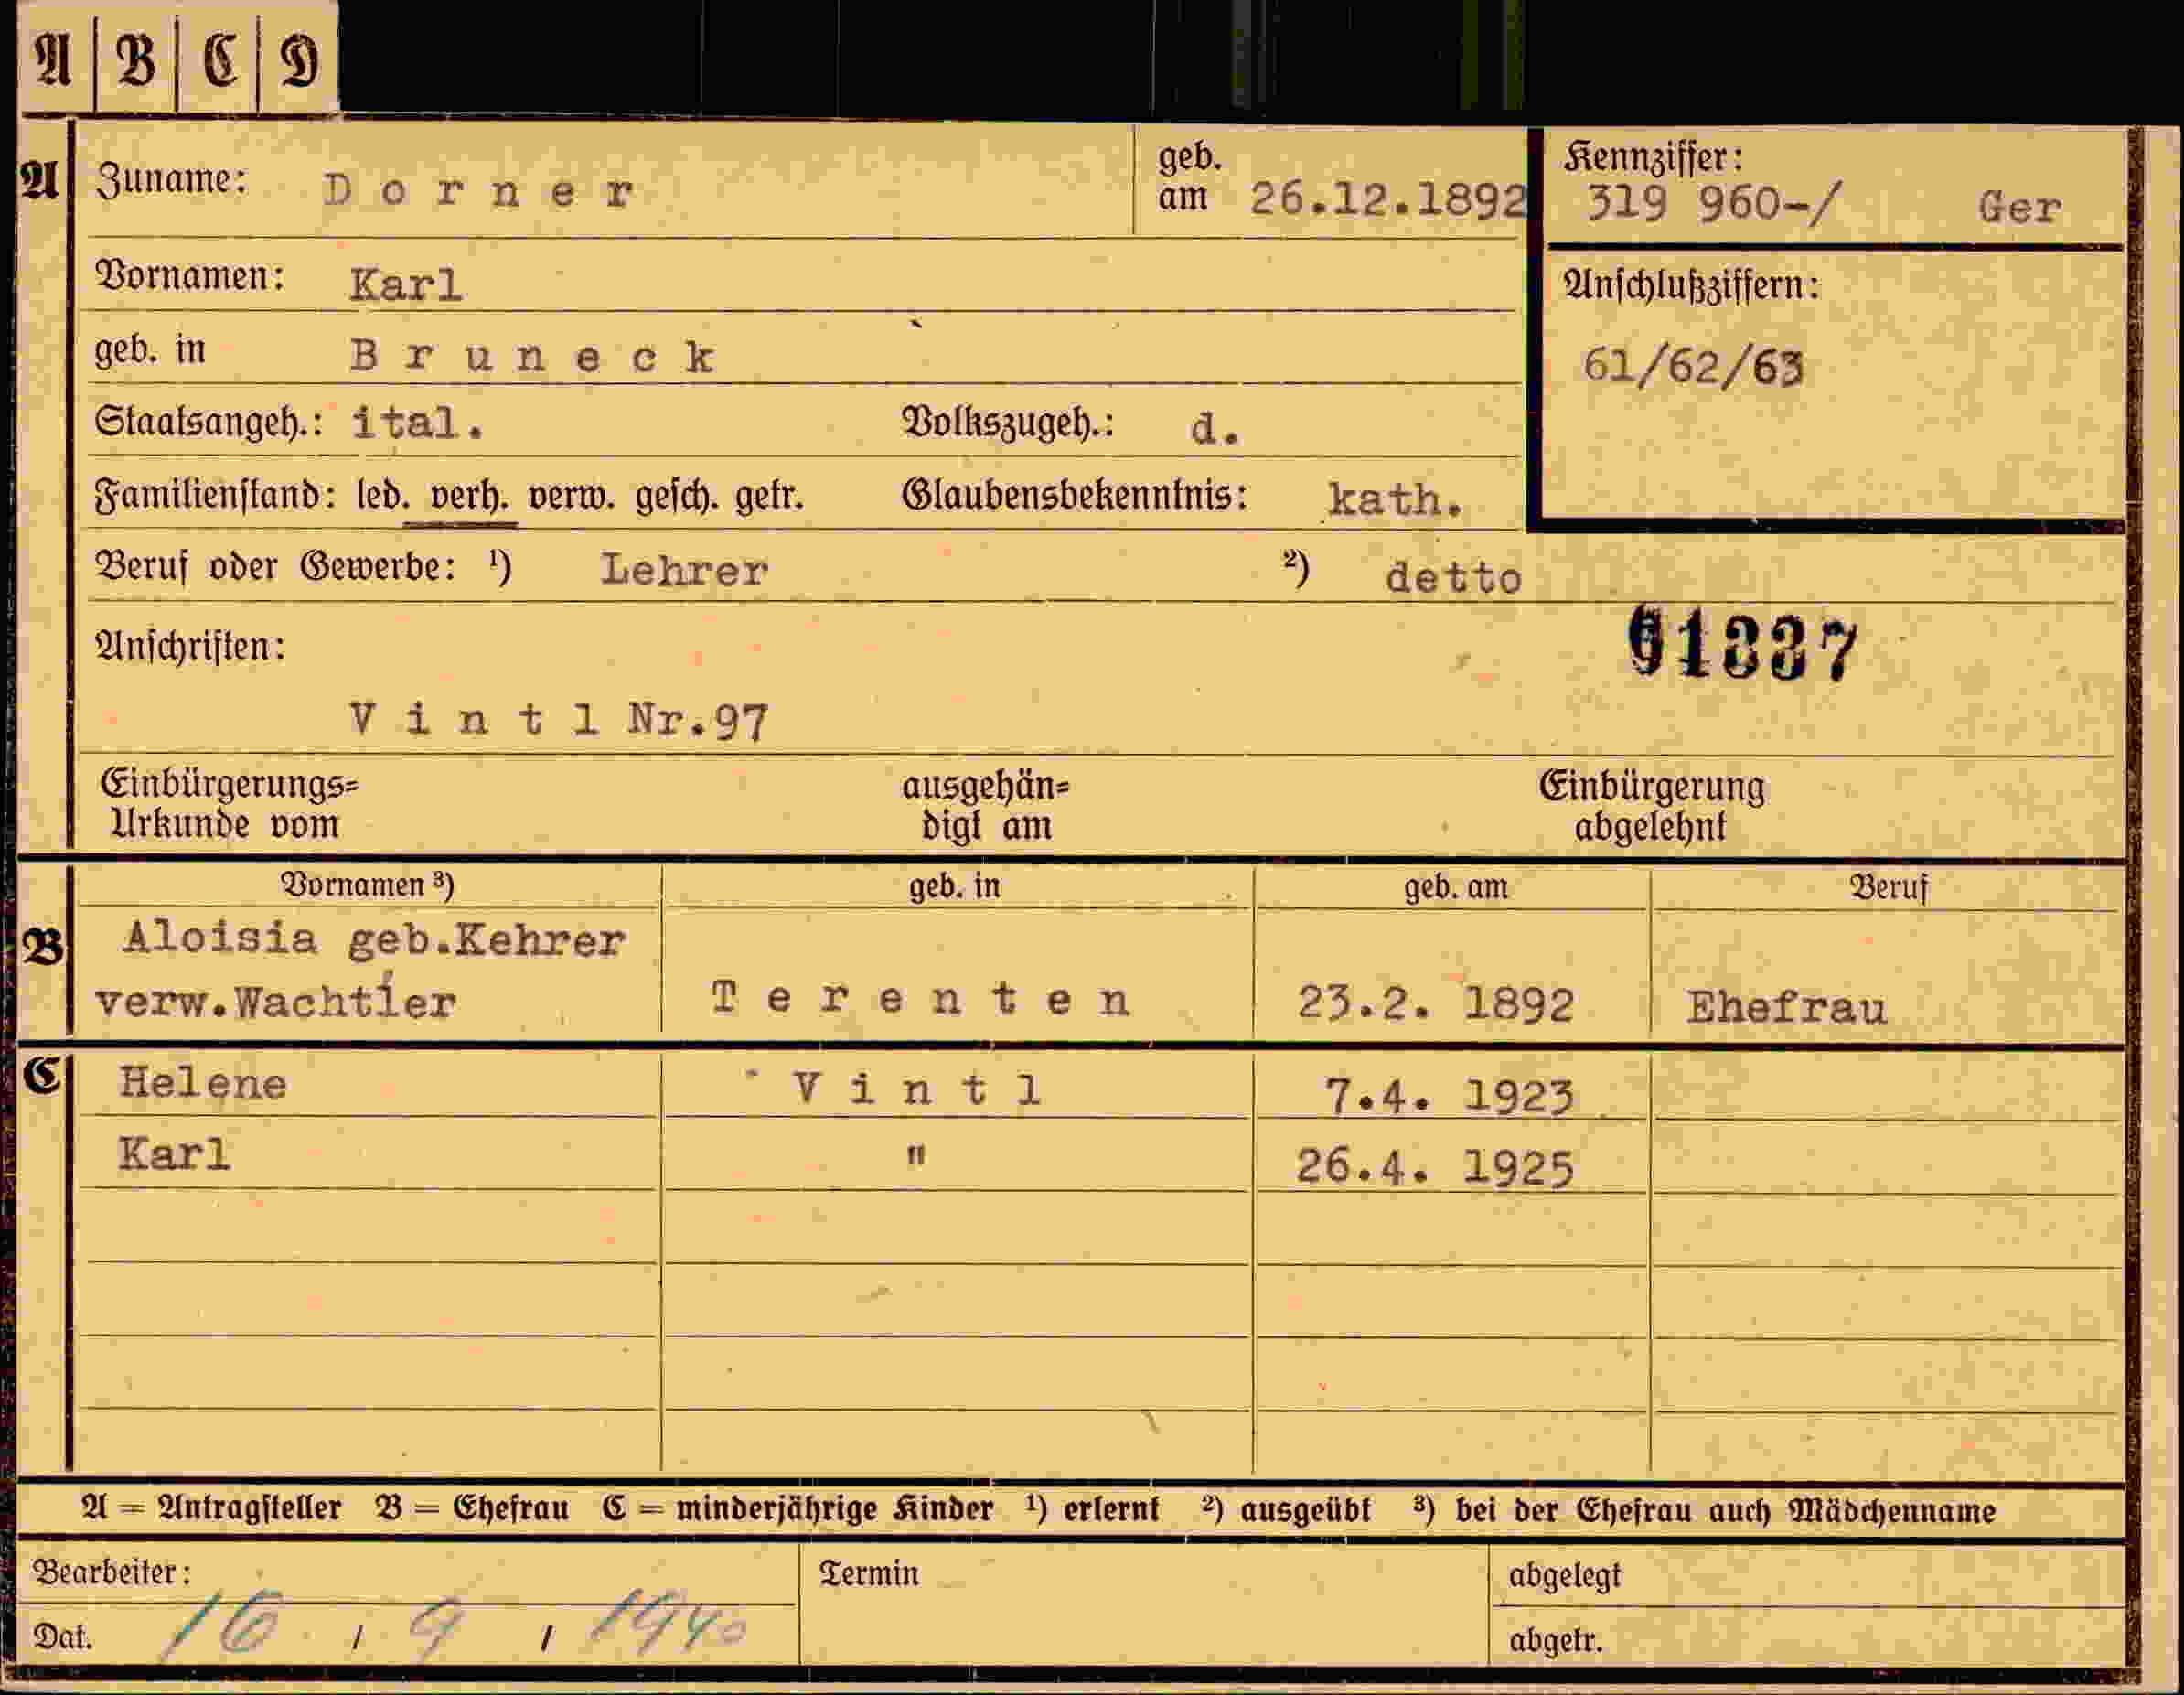 A B C D
A Zuname: Dorner geb. am 26.12.1892 Kennziffer: 319 960-/ Ger
Vornamen: Karl Anschlußziffern:
geb. in Bruneck 61/62/63
Staatsangeh.: ital. Volkszugeh.: d.
Familienstand: led. verh. verw. gesch. getr. Glaubensbekenntnis: kath.
Beruf oder Gewerbe: ¹) Lehrer ²) detto
Anschriften:
Vintl Nr.97
Einbürgerungs= ausgehän= Einbürgerung
Urkunde vom digt am abgelehnt
Vornamen ³) geb. in geb. am Beruf
B Aloisia geb.Kehrer
verw.Wachtler Terenten 23.2. 1892 Ehefrau
C Helene Vintl 7.4. 1923
Karl " 26.4. 1925
A = Antragsteller B = Ehefrau C = minderjährige Kinder ¹) erlernt ²) ausgeübt ³) bei der Ehefrau auch Mädchenname
Bearbeiter: Termin abgelegt
Dat. 16 / 9 / 1940 abgetr.